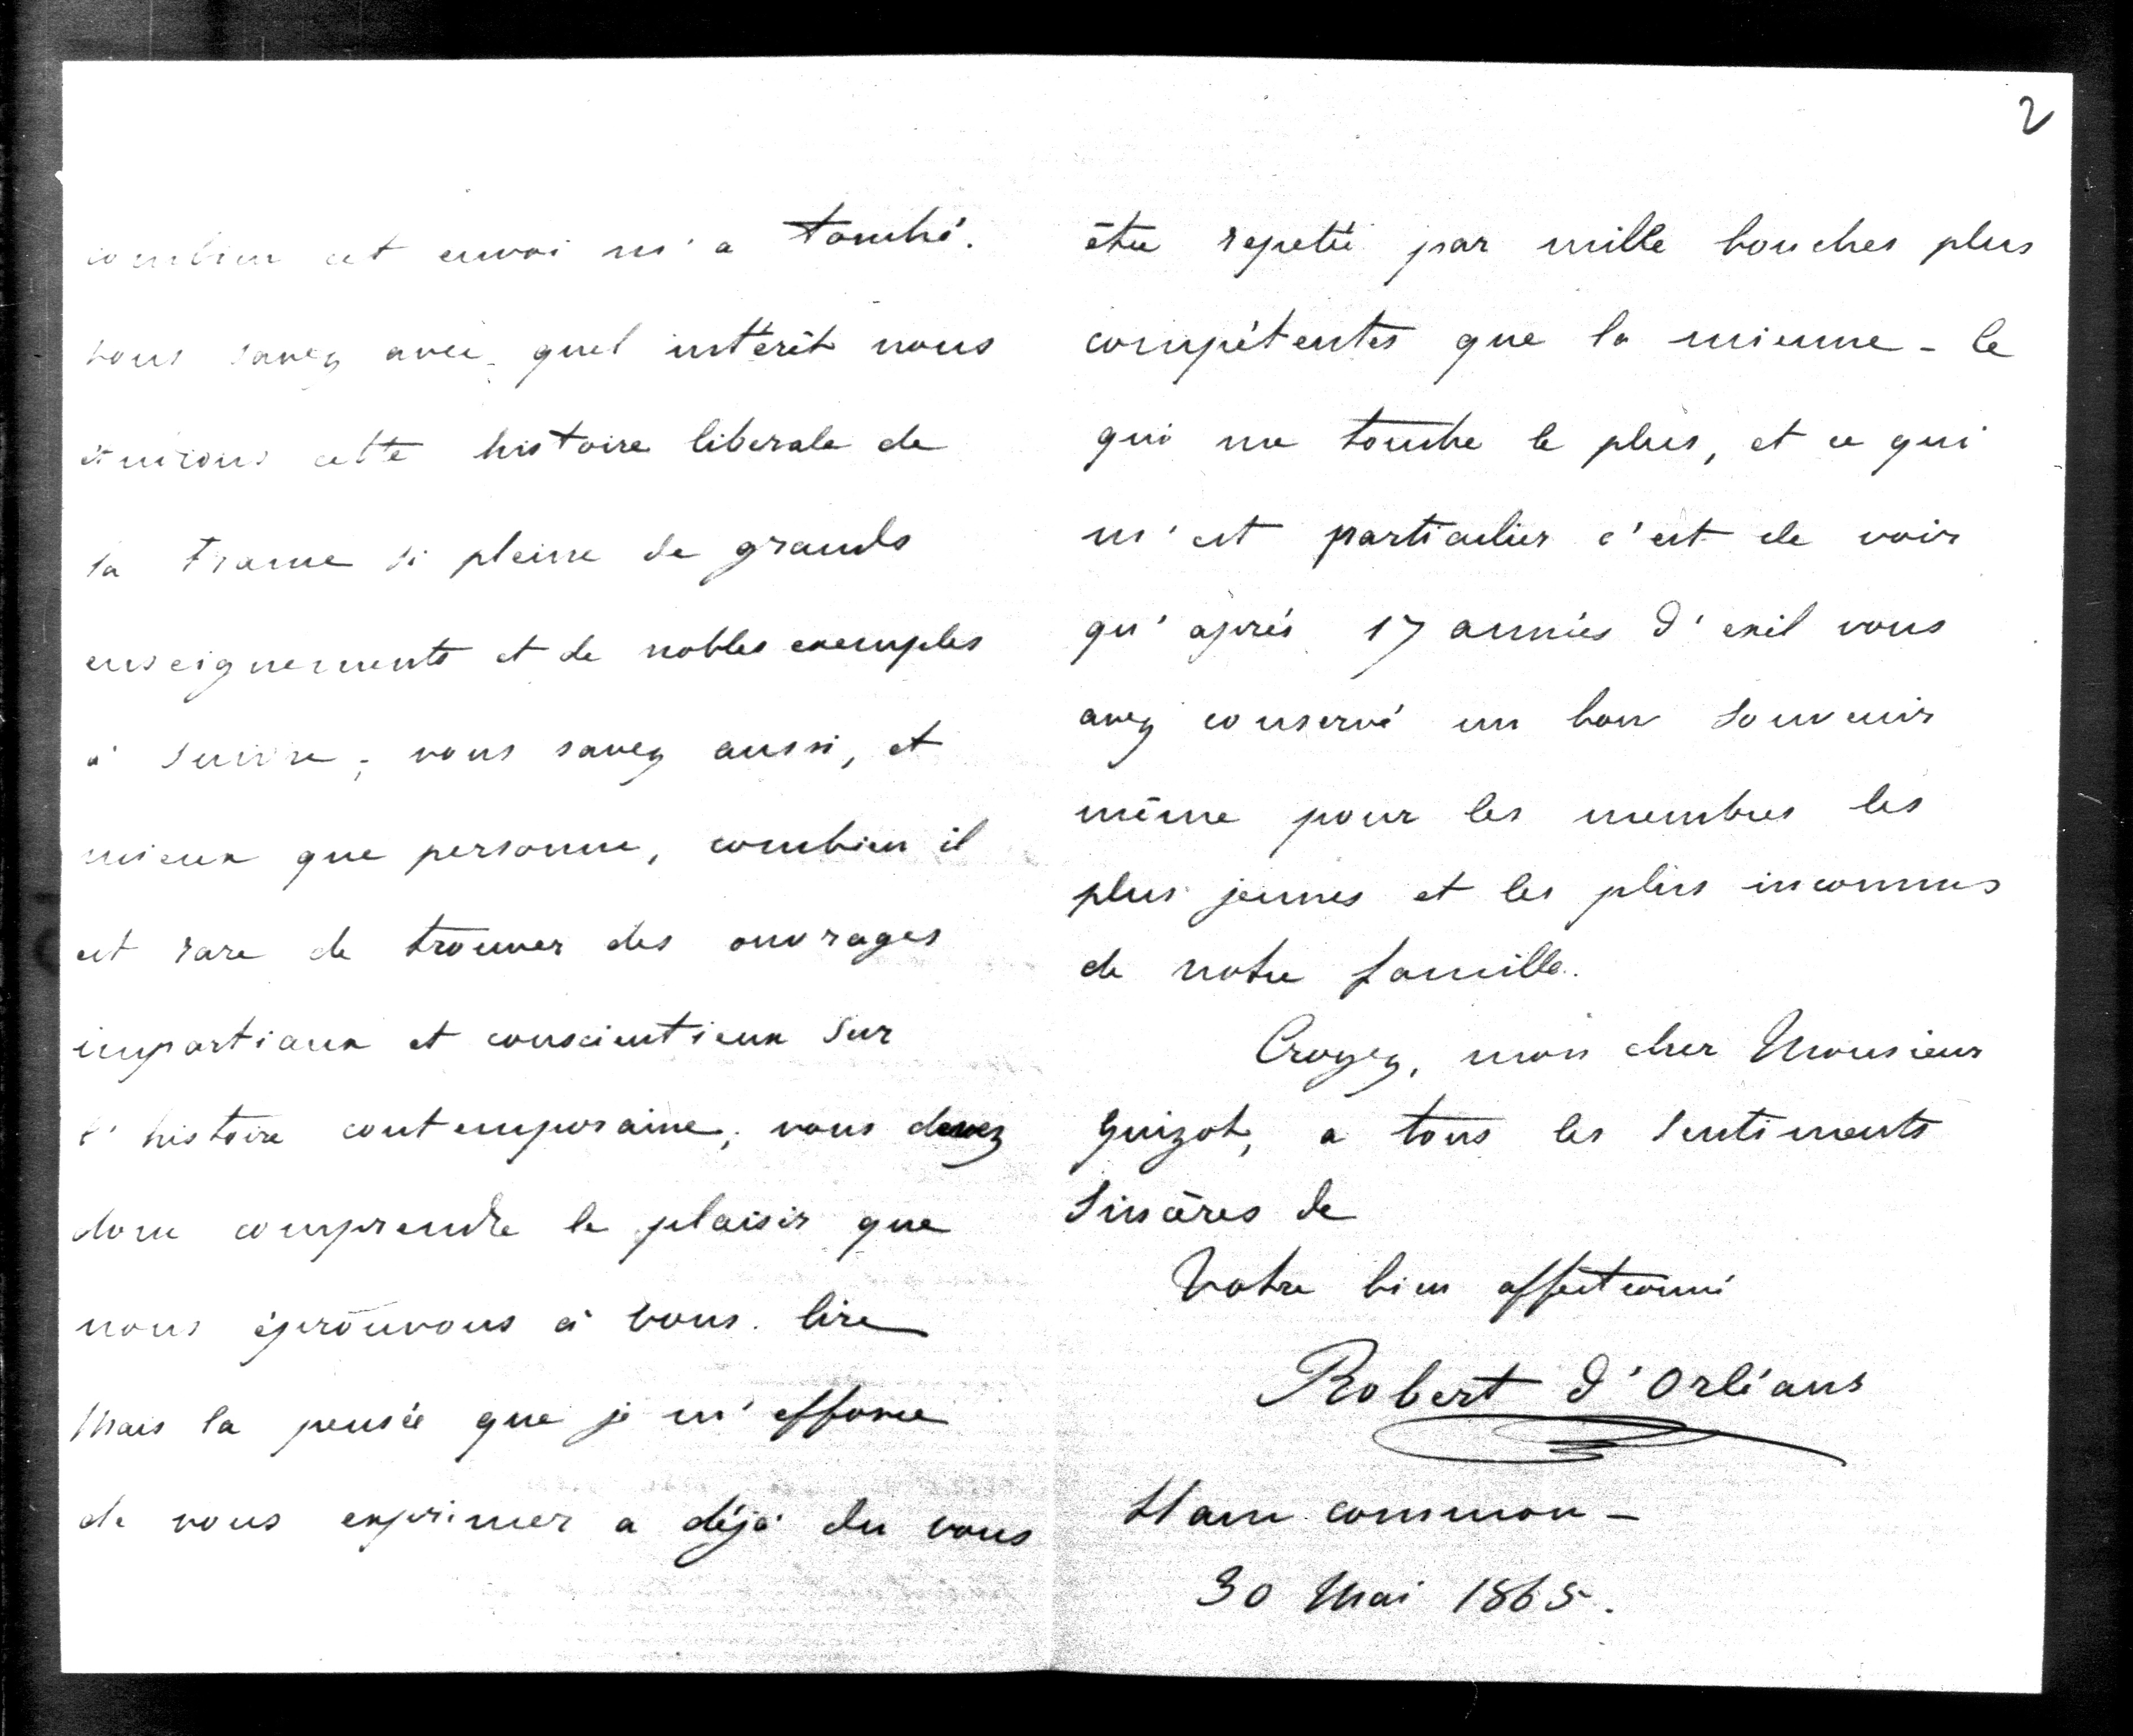 combien cet envoi m'a touché.
vous savez avec quel intérêt nous
étudions cette histoire libérale de
la France si pleine de grands
enseignements et de nobles exemples
à suivre; vous savez aussi, et
mieux que personne, combien il
est rare de trouver des ouvrages
impartiaux et conscientieux sur
l'histoire contemporaine; vous devez
donc comprendre le plaisir que
nous éprouvons à vous lire
Mais la pensée que je m'efforce
de vous exprimer a déjà du vous
2
être repetée par mille bouches plus
compétentes que la mienne - Ce
qui me touche le plus, et ce qui
m'est particulier c'est de voir
qu'après 17 années d'exil vous
avez conservé un bon souvenir
même pour les membres les
plus jeunes et les plus inconnus
de notre famille.
Croyez, mon cher Monsieur
Guizot, a tous les sentiments
Sincères de
Votre bien affectionné
Robert d'Orléans
Ham common -
30 Mai 1865.